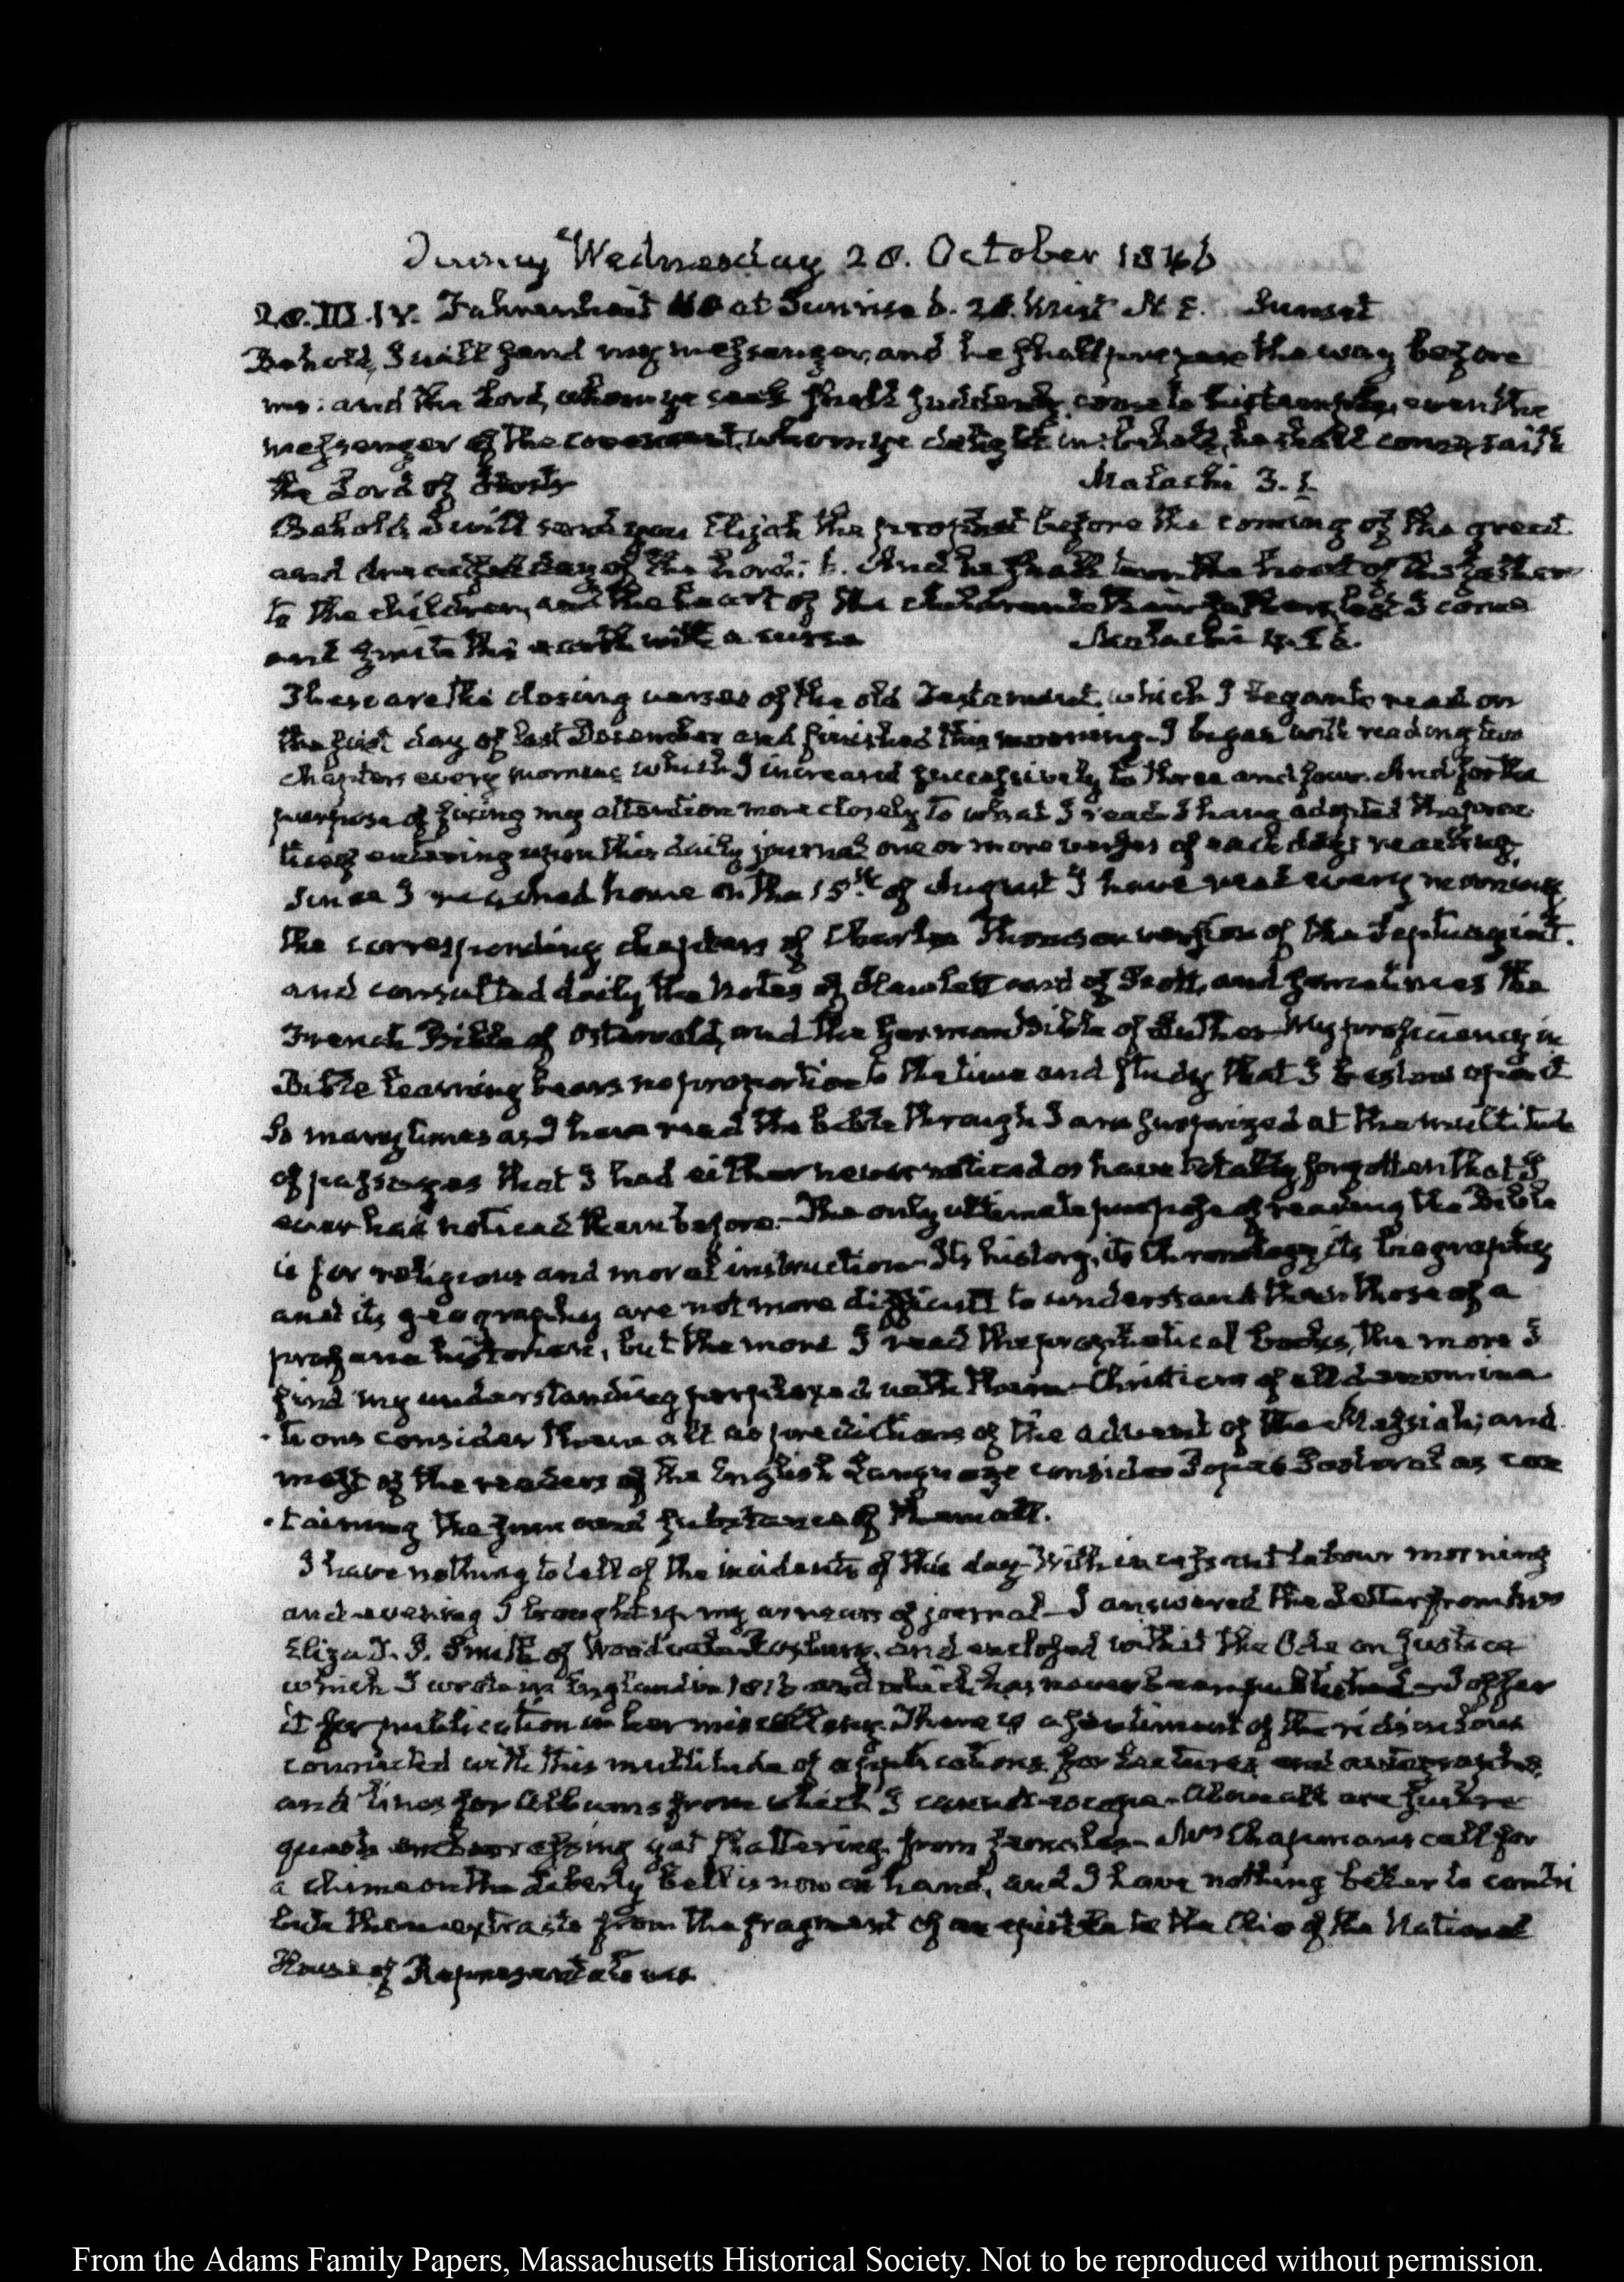 Quincy Wednesday 28. October 1846
28. III. IV. Fahrenheit at Sunrise 6. 28. Wind N E. Sunset
Behold, I will send my messenger, and he shall prepare the way before
me: and the Lord, whom ye seek shall suddenly come to his temple, even the
messenger of the covenant, whom ye delight in: behold, he shall come, saith
the Lord of Hosts Malachi 3. 1.
Behold, I will send you Elijah the prophet before the coming of the great
and dreadful day of the Lord: 6. And he shall turn the heart of the fathers
to the children, and the heart of the children to their fathers, lest I come
and smite the earth with a curse Malachi 4. 5 6.
These are the closing verses of the old Testament, which I began to read on
the first day of last December and finished this morning—I began with reading two
chapters every morning which I increased successively to three and four. And for the
purpose of fixing my attention more closely to what I read I have adopted the prac
tice of entering upon this daily journal one or more verses of each days reading.
Since I reached home on the 15th. of August I have read every morning
the corresponding chapters of Charles Thomson version of the Septuagint.
and consulted daily the Notes of Hewlett and of Scott, and sometimes the
French Bible of Ostervald, and the German Bible of Luther—My proficiency in
Bible learning bears no proportion to the time and study that I bestow upon it
So many times as I have read the bible through I am surprized at the multitude
of passages that I had either never noticed or have totally forgotten that I
ever had noticed them before.—The only ultimate purpose of reading the Bible
is for religious and moral instruction—Its history, its chronology its biography
and its geography are not more difficult to understand than those of a
profane historian, but the more I read the prophetical books, the more I
find my understanding perplexed with them—Christians of all denomina
tions consider them all as predictions of the advent of the Messiah; and
most of the readers of the English Language consider Popes Pastoral as con
taining the sum and substance of them all.
I have nothing to tell of the incidents of this day—With incessant labour morning
and evening I brought up my arrears of journal—I answered the Letter from Mrs
Eliza J. S. Smith of and enclosed with it the Ode on Justice
which I wrote in England in 1816 and which has never been published—I offer
it for publication in her miscellany. There is a sentiment of the ridiculous
connected with this multitude of applications for lectures and autographs
and lines for Albums from which I cannot escape—Above all are the re
quests embarrassing yet flattering from females—Mrs Chapmans call for
a chime on the Liberty bell is now on hand, and I have nothing better to contri
bute than extracts from the fragment of an epistle to the Clio of the National
House of Representatives
From the Adams Family Papers, Massachusetts Historical Society. Not to be reproduced without permission.